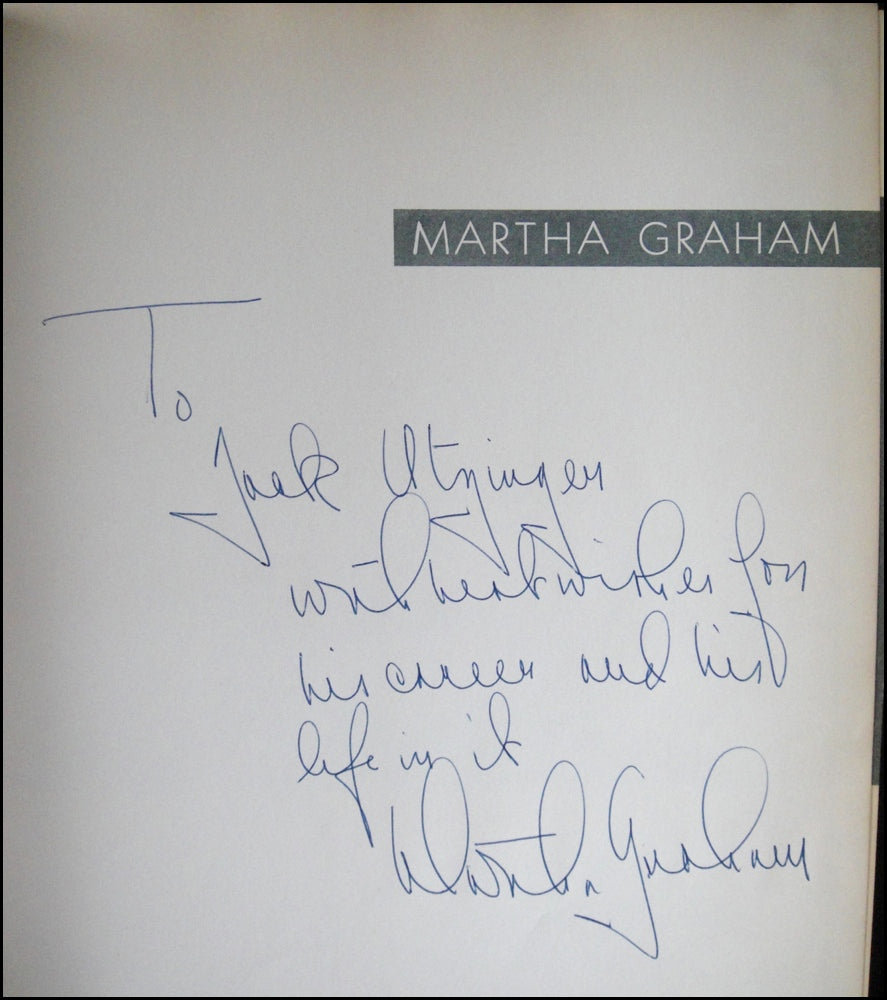 MARTHA GRAHAM
To
Jack Utzinger
with best wishes for
his career and his
life in it
Martha Graham